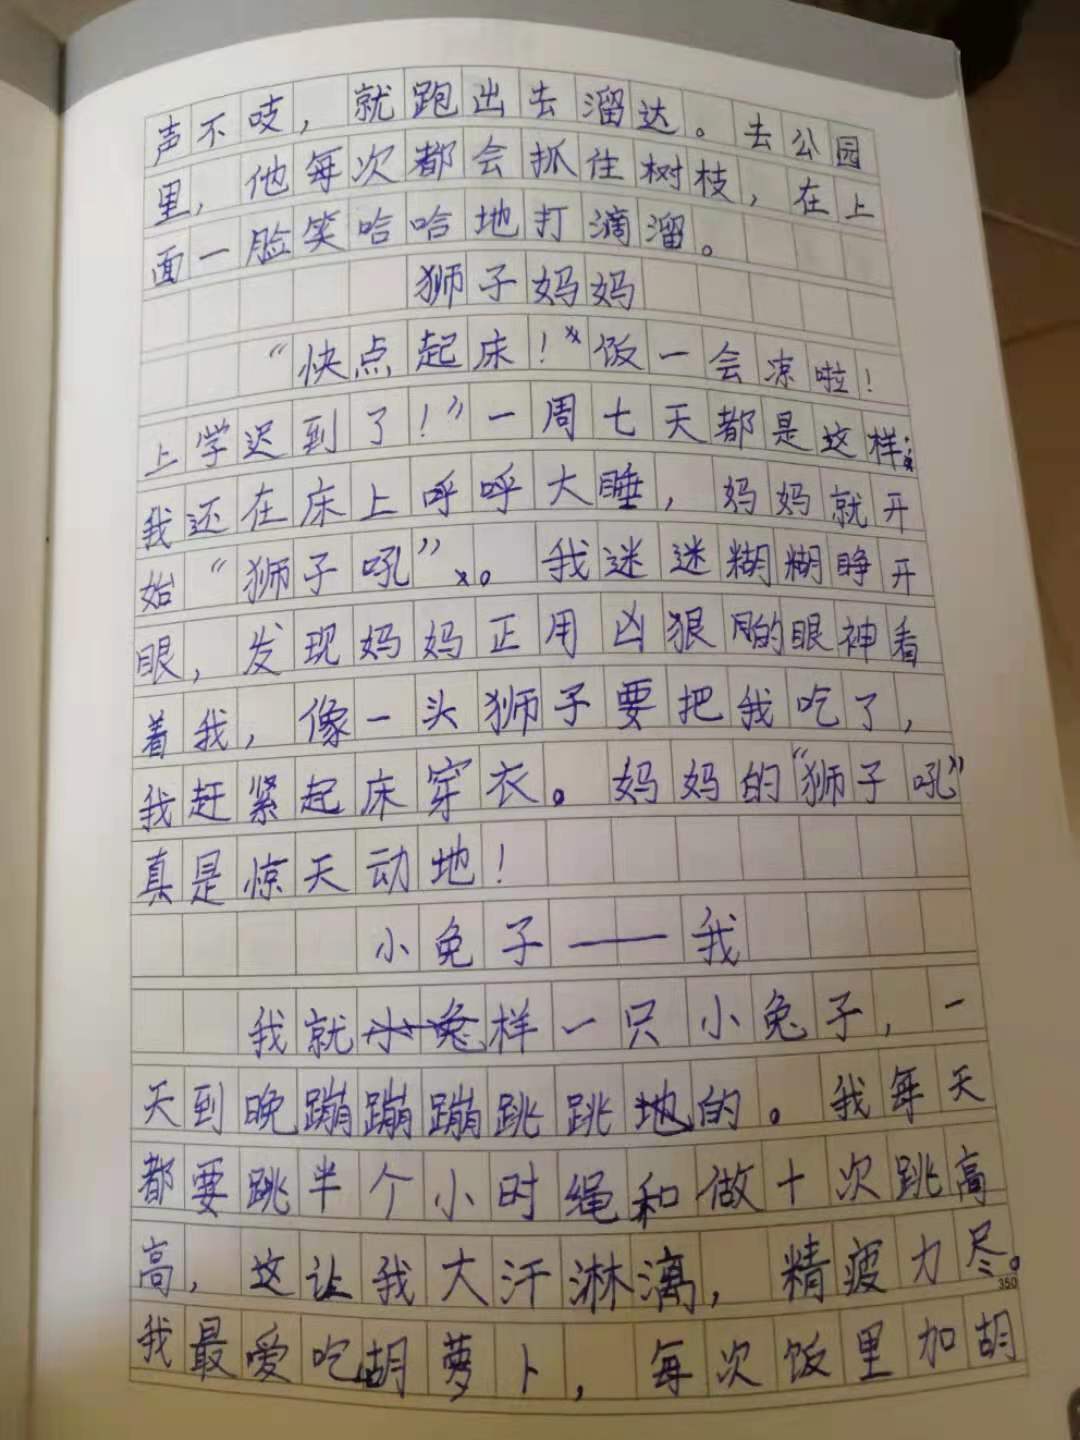 声不吱，就跑出去溜达。去公园
里，他每次都会抓住树枝，在上
面一脸笑哈哈地打滴溜。
狮子妈妈
“快点起床！饭一会凉啦！
上学迟到了！”一周七天都是这样：
我还在床上呼呼大睡，妈妈就开
始“狮子吼”。我迷迷糊糊睁开
眼，发现妈妈正用凶狠的眼神看
着我，像一头狮子要把我吃了，
我赶紧起床穿衣。妈妈的“狮子吼”
真是惊天动地！
小兔子——我
我就样一只小兔子，一
天到晚蹦蹦蹦跳跳的。我每天
都要跳半个小时绳和做十次跳高
高，这让我大汗淋漓，精疲力尽。
350
我最爱吃胡萝卜，每次饭里加胡